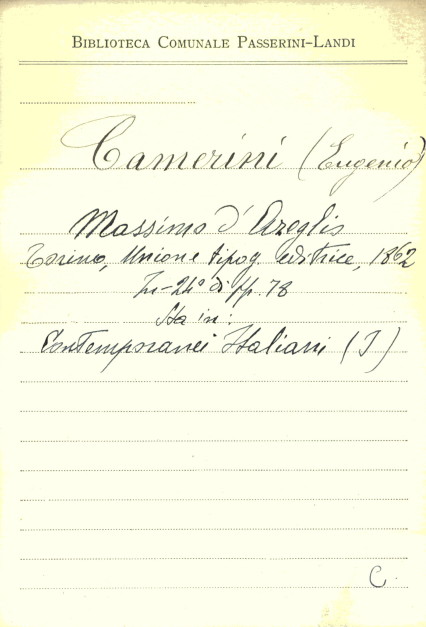 BIBLIOTECA COMUNALE PASSERINI-LANDI
Camerini (Eugenio)
Massimo d'Azeglio
Torino, Unione tipog. editrice, 1862
In-24° di pp. 78
Sta in:
Contemporanei Italiani (I)
C.